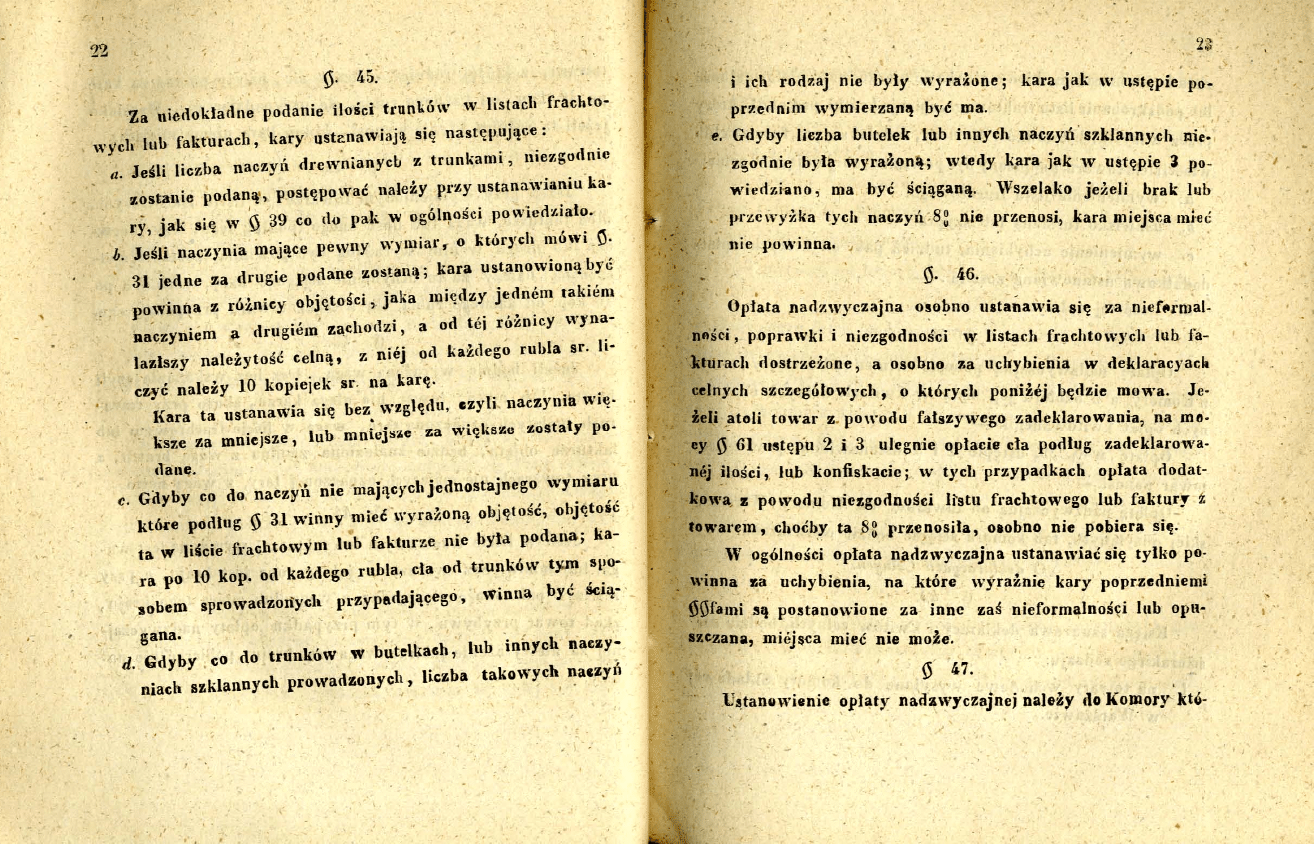 22
§. 45.
Za niedokładne podanie ilości trunków w listach frachto-
wych lub fakturach, kary ustanawiają się następujące:
a. Jeśli liczba naczyń drewnianych z trunkami, niezgodnie
zostanie podaną, postępować należy przy ustanawianiu ka-
ry, jak się w § 39 co do pak w ogólności powiedziało.
b. Jeśli naczynia mające pewny wymiar, o których mówi §.
31 jedne za drugie podane zostaną; kara ustanowioną być
powinna z różnicy objętości, jaka między jedném takiém
naczyniem a drugiém zachodzi, a od téj różnicy wyna-
lazłszy należytość celną, z niéj od każdego rubla sr. li-
czyć należy 10 kopiejek sr. na karę.
Kara ta ustanawia się bez względu, czyli naczynia wię-
ksze za mniejsze, lub mniejsze za większe zostały po-
dane.
c. Gdyby co do naczyń nie mających jednostajnego wymiaru
które podług § 31 winny mieć wyrażoną objętość, objętość
ta w liście frachtowym lub fakturze nie była podana; ka-
ra po 10 kop. od każdego rubla, cła od trunków tym spo-
sobem sprowadzonych przypadającego, winna być ścią-
gana.
d. Gdyby co do trunków w butelkach, lub innych naczy-
niach szklannych prowadzonych, liczba takowych naczyń
23
i ich rodzaj nie były wyrażone; kara jak w ustępie po-
przednim wymierzaną być ma.
e. Gdyby liczba butelek lub innych naczyń szklannych nie-
zgodnie była wyrażoną; wtedy kara jak w ustępie 3 po-
wiedziano, ma być ściąganą. Wszelako jeżeli brak lub
przewyżka tych naczyń 8% nie przenosi, kara miejsca mieć
nie powinna.
§. 46.
Opłata nadzwyczajna osobno ustanawia się za nieformal-
ności, poprawki i niezgodności w listach frachtowych lub fa-
kturach dostrzeżone, a osobno za uchybienia w deklaracyach
celnych szczegółowych, o których poniżéj będzie mowa. Je-
żeli atoli towar z powodu fałszywego zadeklarowania, na mo-
cy § 61 ustępu 2 i 3 ulegnie opłacie cła podług zadeklarowa-
néj ilości, lub konfiskacie; w tych przypadkach opłata dodat-
kowa z powodu niezgodności listu frachtowego lub faktury z
towarem, choćby ta 8% przenosiła, osobno nie pobiera się.
W ogólności opłata nadzwyczajna ustanawiać się tylko po-
winna za uchybienia, na które wyraźnie kary poprzedniemi
§§fami są postanowione za inne zaś nieformalności lub opu-
szczana, miéjsca mieć nie może.
§ 47.
Ustanowienie opłaty nadzwyczajnej należy do Komory któ-